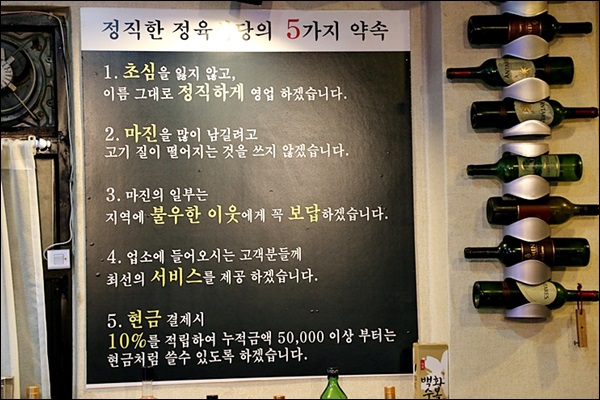 정직한 정육 당의 5가지 약속
1. 초심을 잃지 않고,
이름 그대로 정직하게 영업 하겠습니다.
2. 마진을 많이 남길려고
고기 질이 떨어지는 것을 쓰지 않겠습니다.
3. 마진의 일부는
지역에 불우한 이웃에게 꼭 보답하겠습니다.
4. 업소에 들어오시는 고객분들께
최선의 서비스를 제공 하겠습니다.
5. 현금 결제시
10%를 적립하여 누적금액 50,000 이상 부터는
현금처럼 쓸수 있도록 하겠습니다.
백화
수복